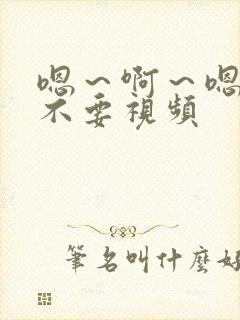 嗯～啊～嗯
不要視頻
筆名叫什麼好